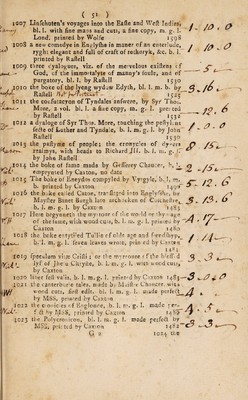 ( 51 )
1007 Linschoten's voyages into the Easte and West Indies,
bl. l. with fine maps and cuts, a fine copy, m. g. l.
Lond. printed by Wolfe 1598
1-10.0
1008 a new comodye in Englysshe in maner of an enterlude,
ryght elegant and full of craft of rethoryk, &c. b. l.
printed by Rastell
1-10.0
1009 three dyalogues, viz. of the mervelous existens of
God, of the immortalyte of manny's soule, and of
purgatory, bl. l. by Rastell 1530
5
1010 the boke of the lyvng wydow Edyth, bl. l. m. b. by
Rastell
3.16
1011 the confutacyon of Tyndales answere, by Syr Tho.
More, 2 vol. bl. l. a fine copy, m. g. l. printed
by Rastell 1532
12.6
1012 a dyaloge of Syr Thos. More, touching the pestylent
secte of Luther and Tyndale, b. l. m. g. l. by John
Rastell 1530
1.0.0
1013 the pastyme of people; the cronycles of dyvers
realmys, with heads to Richard III. b. l. m. g. l.
by John Rastell
8.15
1014 the boke of fame made by Gefferey Chaucer, b. l.
emprynted by Caxton, no date
2-15
1015 The boke of Eneydos compyled by Vyrgyle, b. l. m.
b. printed by Caxton, no date
5.12.6
1016 the boke called Caton, translated into Englysshe, by
Mayster Benet Burgh late archdeken of Colchestre,
b. l. m. g. l. by Caxton 1483
3.13.6
1017 Here begynneth the myrrour of the world or thymage
of the same, with wood cuts, b. l. m. g. l. printed by
Caxton 1480
4.17
1018 the boke entytled Tullis of olde age and frendship,
b. l. m. g. l. seven leaves wrote, printed by Caxton
1481
1019 speculum vitæ Cristi; or the myrroure of the blessed
lyf of Jhesu Chryste, bl. l. m. g. l. with wood cuts,
by Caxton
3.3
1020 liber festivalis, b. l. m. g. l. printed by Caxton 1483
3.0.0
1021 the canterburie tales, made by Maister Chaucer, with
wood cuts, first edit. bl. l. m. g. l. made perfect
by MSS, printed by Caxton
4
1022 the cronicles of Englonde, b. l. m. g. l. made per-
fect by MSS, printed by Caxton
4.5
1023 the Polycronicon, bl. l. m. g. l. made perfect by
MSS, printed by Caxton 1482
3-3
G 2
1024 the